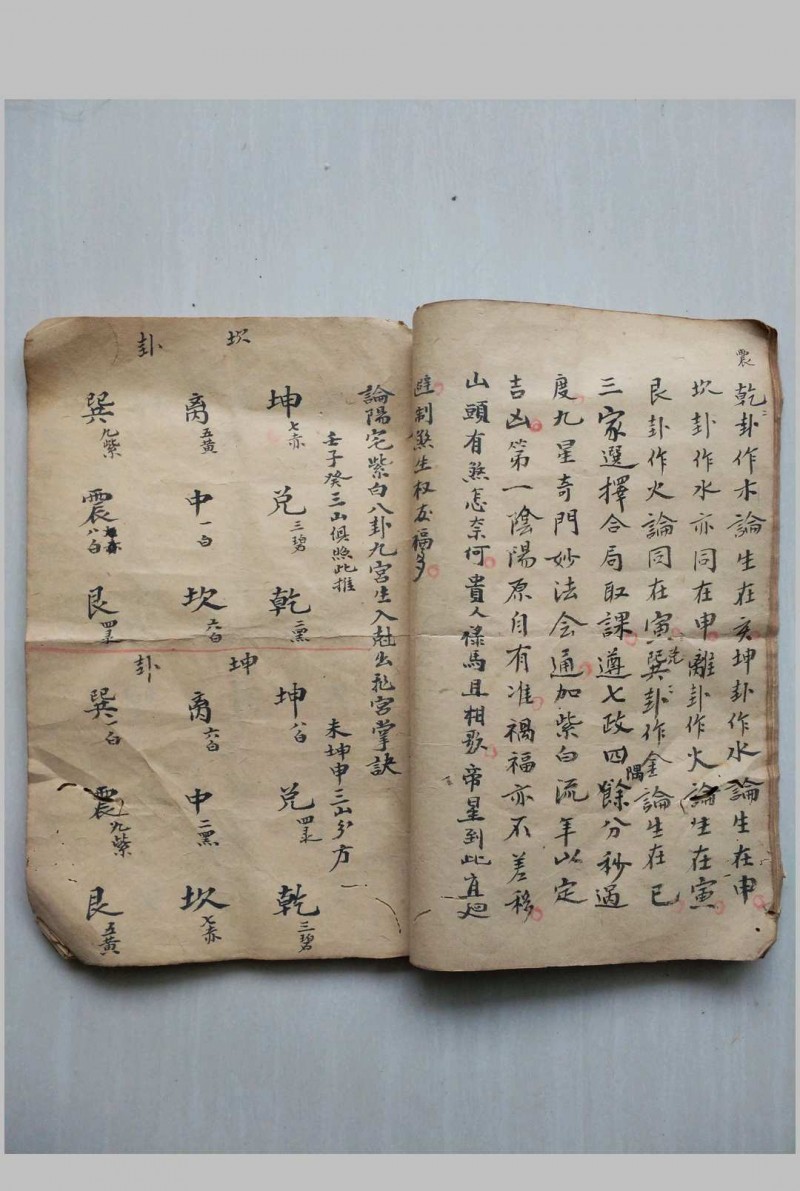 震
乾卦作木論生在亥坤卦作水論生在申
坎卦作水亦同在申離卦作火論生在寅
艮卦作火論同在寅兌巽卦作金論生在巳
三家選擇合局取課遵七政四餘分秒過
隅
度九星奇門妙法会通加紫白流年以定
吉凶第一陰陽原自有准禍福亦不差移
山頭有煞怎奈何貴人祿馬且相歌帝星到此直迴
避制煞生权友福多
論陽宅紫白八卦九宮生入尅出飛宮掌訣
壬子癸三山俱照此推
未坤申三山夕方
坎卦
坤七赤 兌三碧 乾二黑
离五黃 中一白 坎六白
巽九紫 震八白 艮四录
坤卦
坤八白 兌四录 乾三碧
离六白 中二黑 坎七赤
巽一白 震九紫 艮五黃